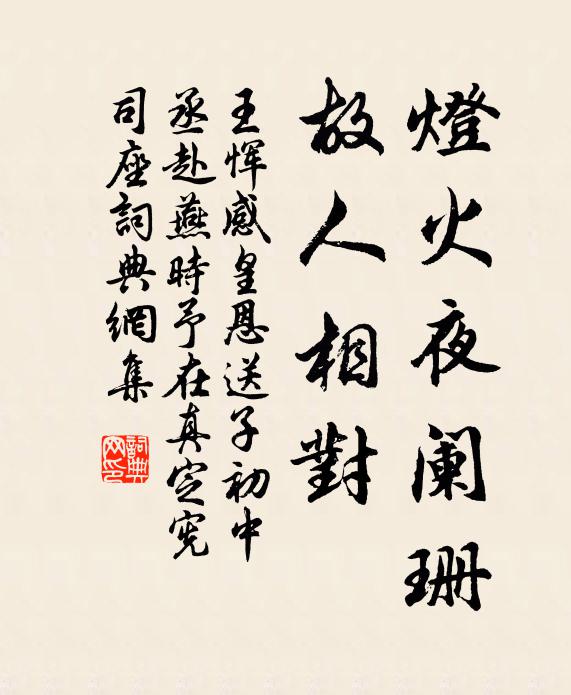 燈火夜阑珊
故人相對
王恽感皇恩送子初中
丞赴燕時予在真定宪
司座詞典網集
詞典网印